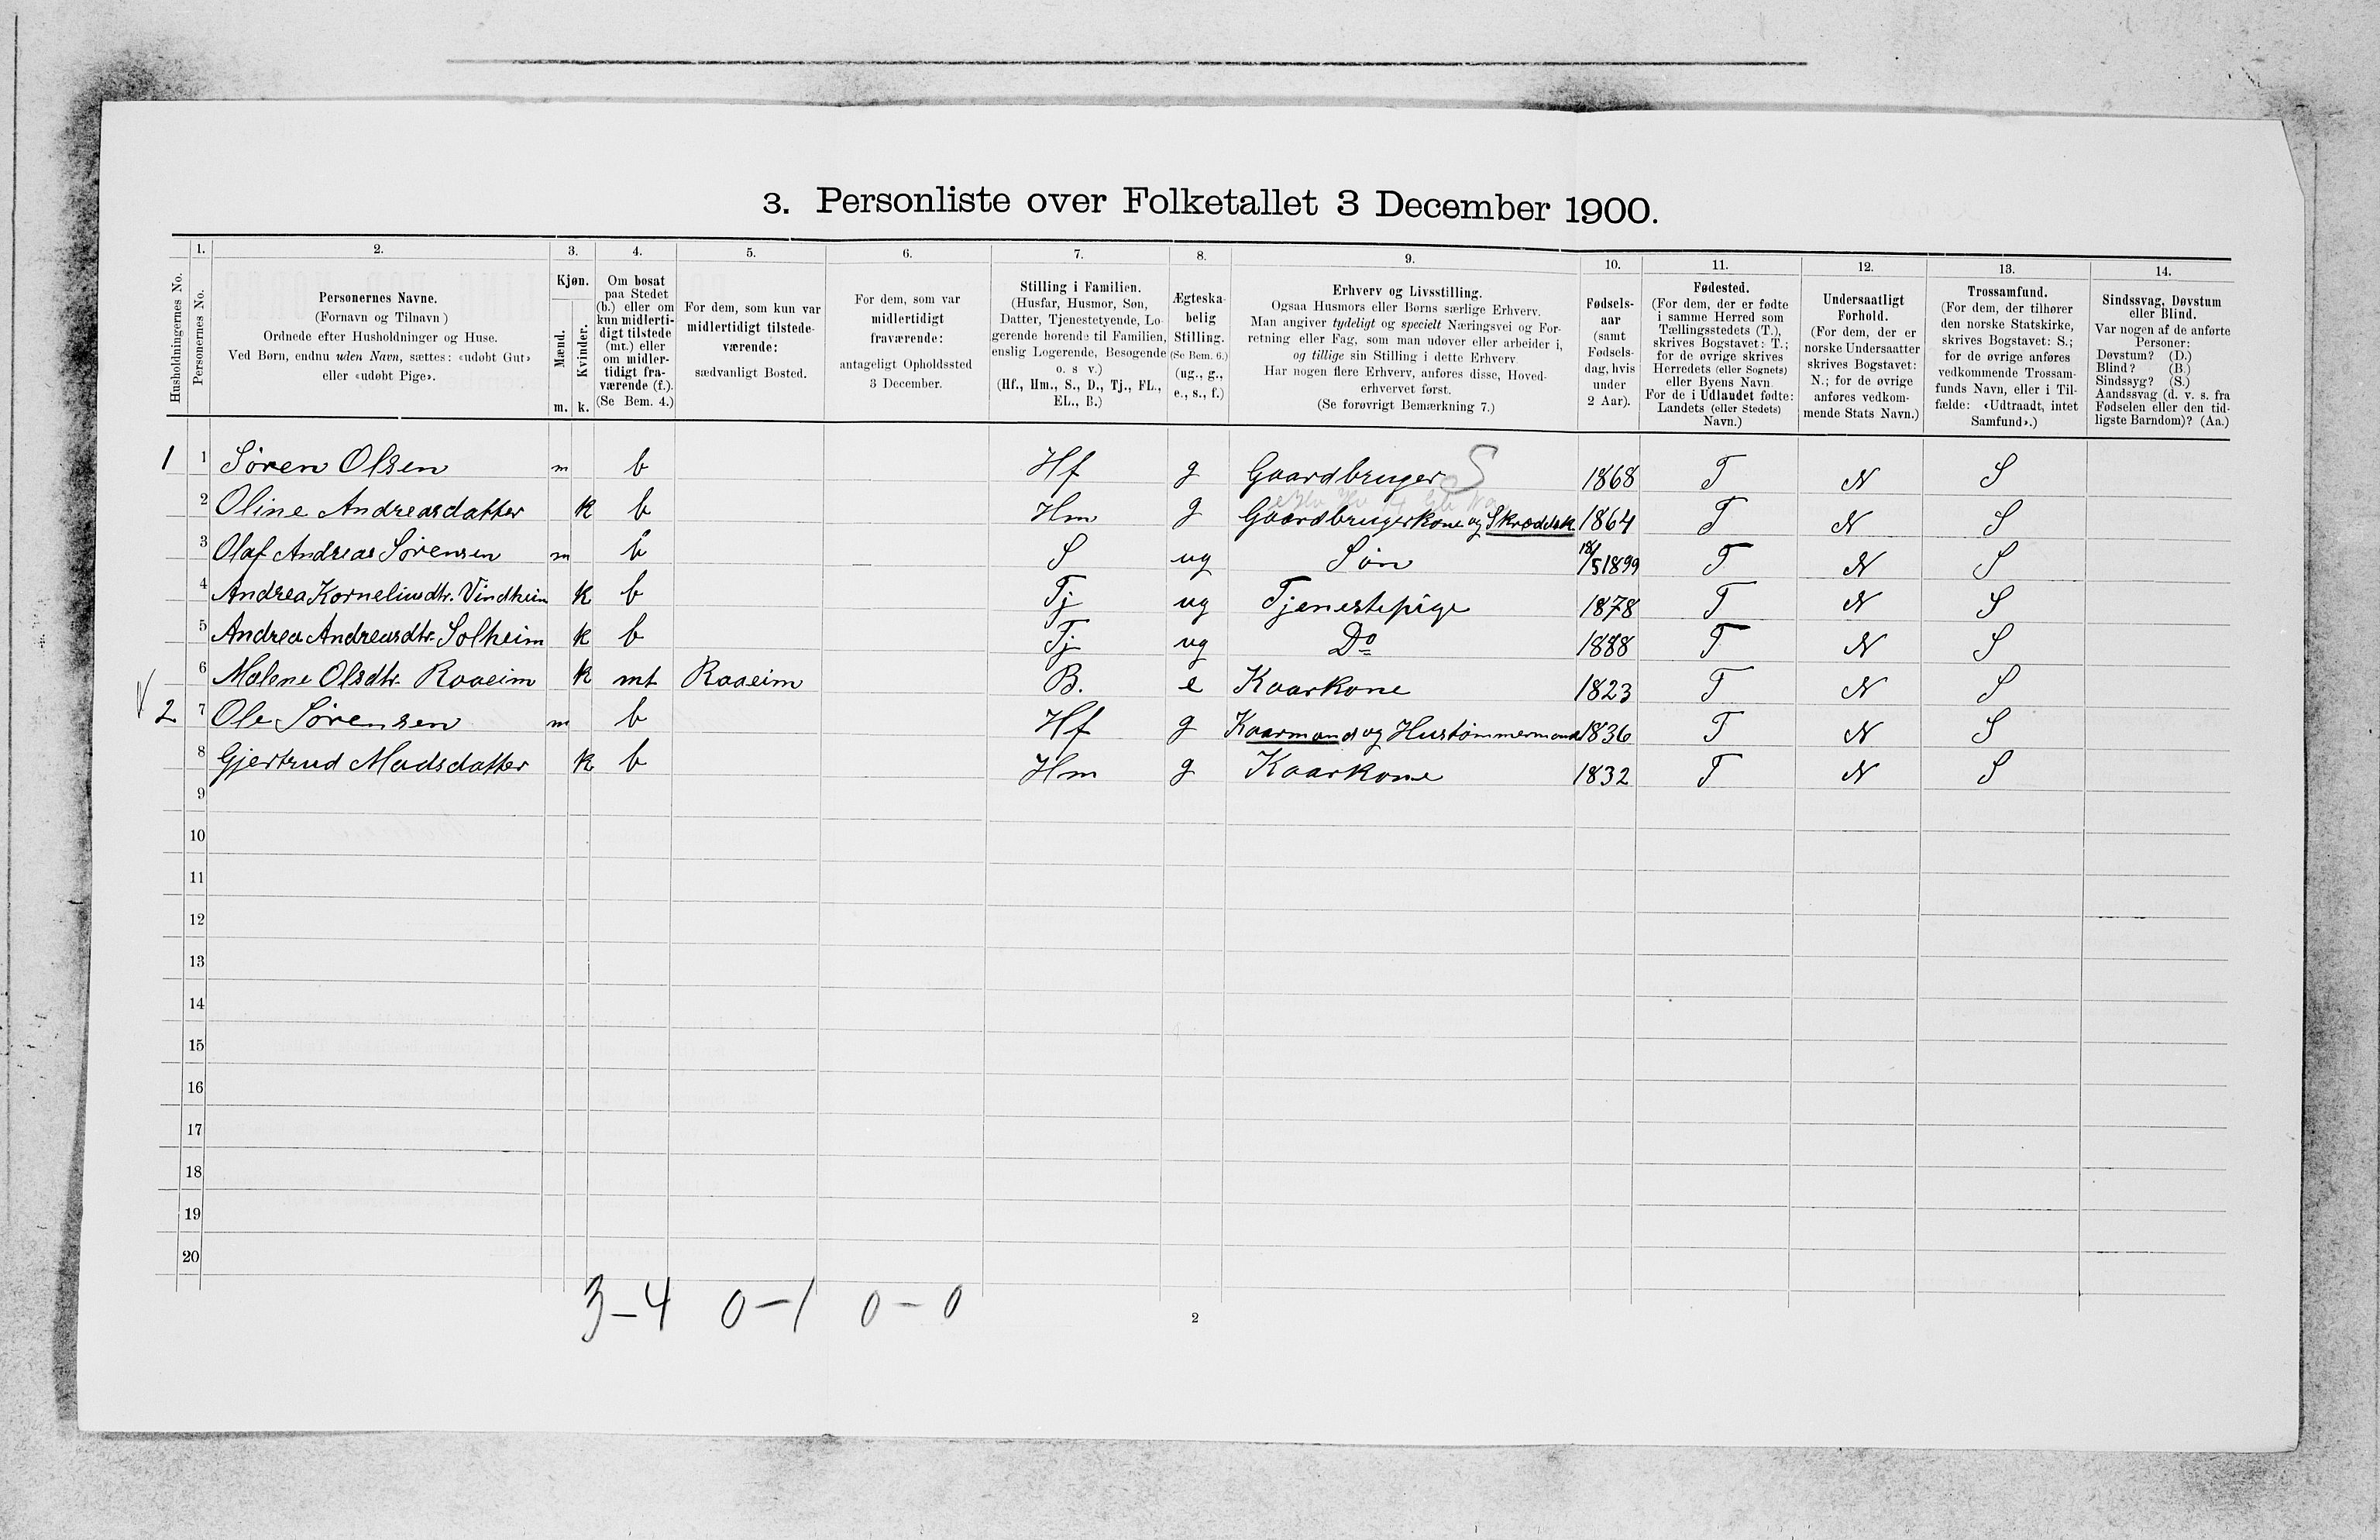 3. Personliste over Folketallet 3 December 1900.
1. 2. 3. 4. 5. 6. 7. 8. 9. 10. 11. 12. 13. 14.
Husholdningernes No.
Personernes No.
Personernes Navne.
(Fornavn og Tilnavn )
Ordnede efter Husholdninger og Huse.
Ved Børn, endnu uden Navn, sættes: «udøbt Gut»
eller «udøbt Pige».
Kjøn.
Mænd.
Kvinder.
m. k.
Om bosat
paa Stedet
(b.) eller om
kun midlerti-
digt tilstede
(mt.) eller
om midler-
tidigt fra-
værende (f.).
(Se Bem. 4.)
For dem, som kun var
midlertidigt tilstede-
værende:
sædvanligt Bosted.
For dem, som var
midlertidigt
fraværende:
antageligt Opholdssted
3 December.
Stilling i Familien.
(Husfar, Husmor, Søn,
Datter, Tjenestetyende, Lo-
gerende hørende til Familien,
enslig Logerende, Besøgende
o. s v.)
(Hf., Hm., S., D., Tj., FL.,
EL., B.)
Ægteska-
belig
Stilling.
(Se Bem. 6.)
(ug., g.,
e., s., f.)
Erhverv og Livsstilling.
Ogsaa Husmors eller Børns særlige Erhverv.
Man angiver tydeligt og specielt Næringsvei og For-
retning eller Fag, som man udøver eller arbeider i,
og tillige sin Stilling i dette Erhverv.
Har nogen flere Erhverv, anføres disse, Hoved-
erhvervet først.
(Se forøvrigt Bemærkning 7.)
Fødsels-
aar
(samt
Fødsels-
dag, hvis
under
2 Aar).
Fødested.
(For dem, der er fødte
i samme Herred som
Tællingsstedets (T.),
skrives Bogstavet: T.;
for de øvrige skrives
Herredets (eller Sognets)
eller Byens Navn.
For de i Udlandet fødte:
Landets (eller Stedets)
Navn.)
Undersaatligt
Forhold.
(For dem, der er
norske Undersaatter
skrives Bogstavet:
N.; for de øvrige
anføres vedkom-
mende Stats Navn.)
Trossamfund.
(For dem, der tilhører
den norske Statskirke,
skrives Bogstavet: S.;
for de øvrige anføres
vedkommende Trossam-
funds Navn, eller i Til-
fælde: «Udtraadt, intet
Samfund».)
Sindssvag, Døvstum
eller Blind.
Var nogen af de anførte
Personer:
Døvstum? (D.)
Blind? (B.)
Sindssyg? (S.)
Aandssvag (d. v. s. fra
Fødselen eller den tid-
ligste Barndom)? (Aa.)
1 1 Sören Olsen m b Hf g Gaardbruger S 1868 T N S
2 Oline Andreasdatter k b Hm g Gaardbrugerkone og Skrædersk. 1864 T N S
3 Olaf Andreas Sörensen m b — S ug Sön 18/5 1899 T N S
4 Andrea Korneliusdtr. Vindheim k b Tj ug Tjenestepige 1878 T N S
5 Andrea Andreasdtr. Solheim k b Tj ug Do 1888 T N S
6 Malene Olsdtr. Raaeim k mt Raaeim B. e Kaarkone 1823 T N S
2 7 Ole Sörensen m b Hf g Kaarmand og Hustömmermand 1836 T N S
8 Gjertrud Madsdatter k b Hm g Kaarkone 1832 T N S
9
10
11
12
13
14
15
16
17
18
19
20
3-4 0-1 0-0
2